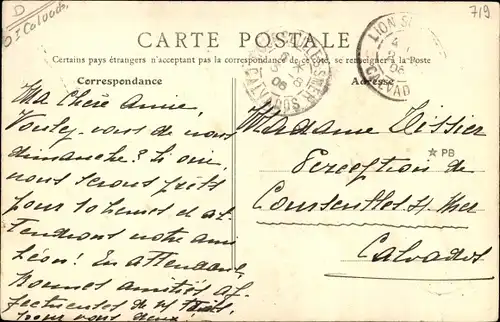 D
Calvados
719
CARTE POSTALE
Certains pays étrangers n'acceptant pas la correspondance de ce côté, se renseigner à la Poste
Correspondance
Adresse
LION S
CALVAD
CALVADOS
Ma Chère Amie,
Voulez-vous de nous
dimanche? Si oui,
nous serons prêts
pour 10 heures et at-
tendrons notre ami
Léon! En attendant
Bonnes amitiés af-
fectueuses de
pour vous deux!
Madame Tissier
PB
Perception de
Courseulles s/ Mer
Calvados